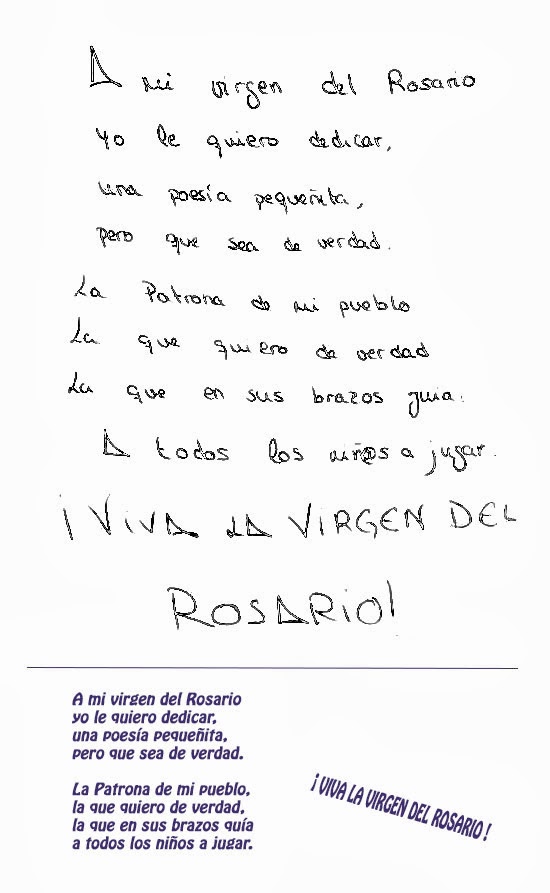 A mi virgen del Rosario
yo le quiero dedicar,
una poesía pequeñita,
pero que sea de verdad.
La Patrona de mi pueblo
La que quiero de verdad
La que en sus brazos guia.
A todos los niñ@s a jugar.
¡VIVA LA VIRGEN DEL
ROSARIO!
A mi virgen del Rosario
yo le quiero dedicar,
una poesía pequeñita,
pero que sea de verdad.
La Patrona de mi pueblo,
la que quiero de verdad,
la que en sus brazos quía
a todos los niños a jugar.
¡VIVA LA VIRGEN DEL ROSARIO!